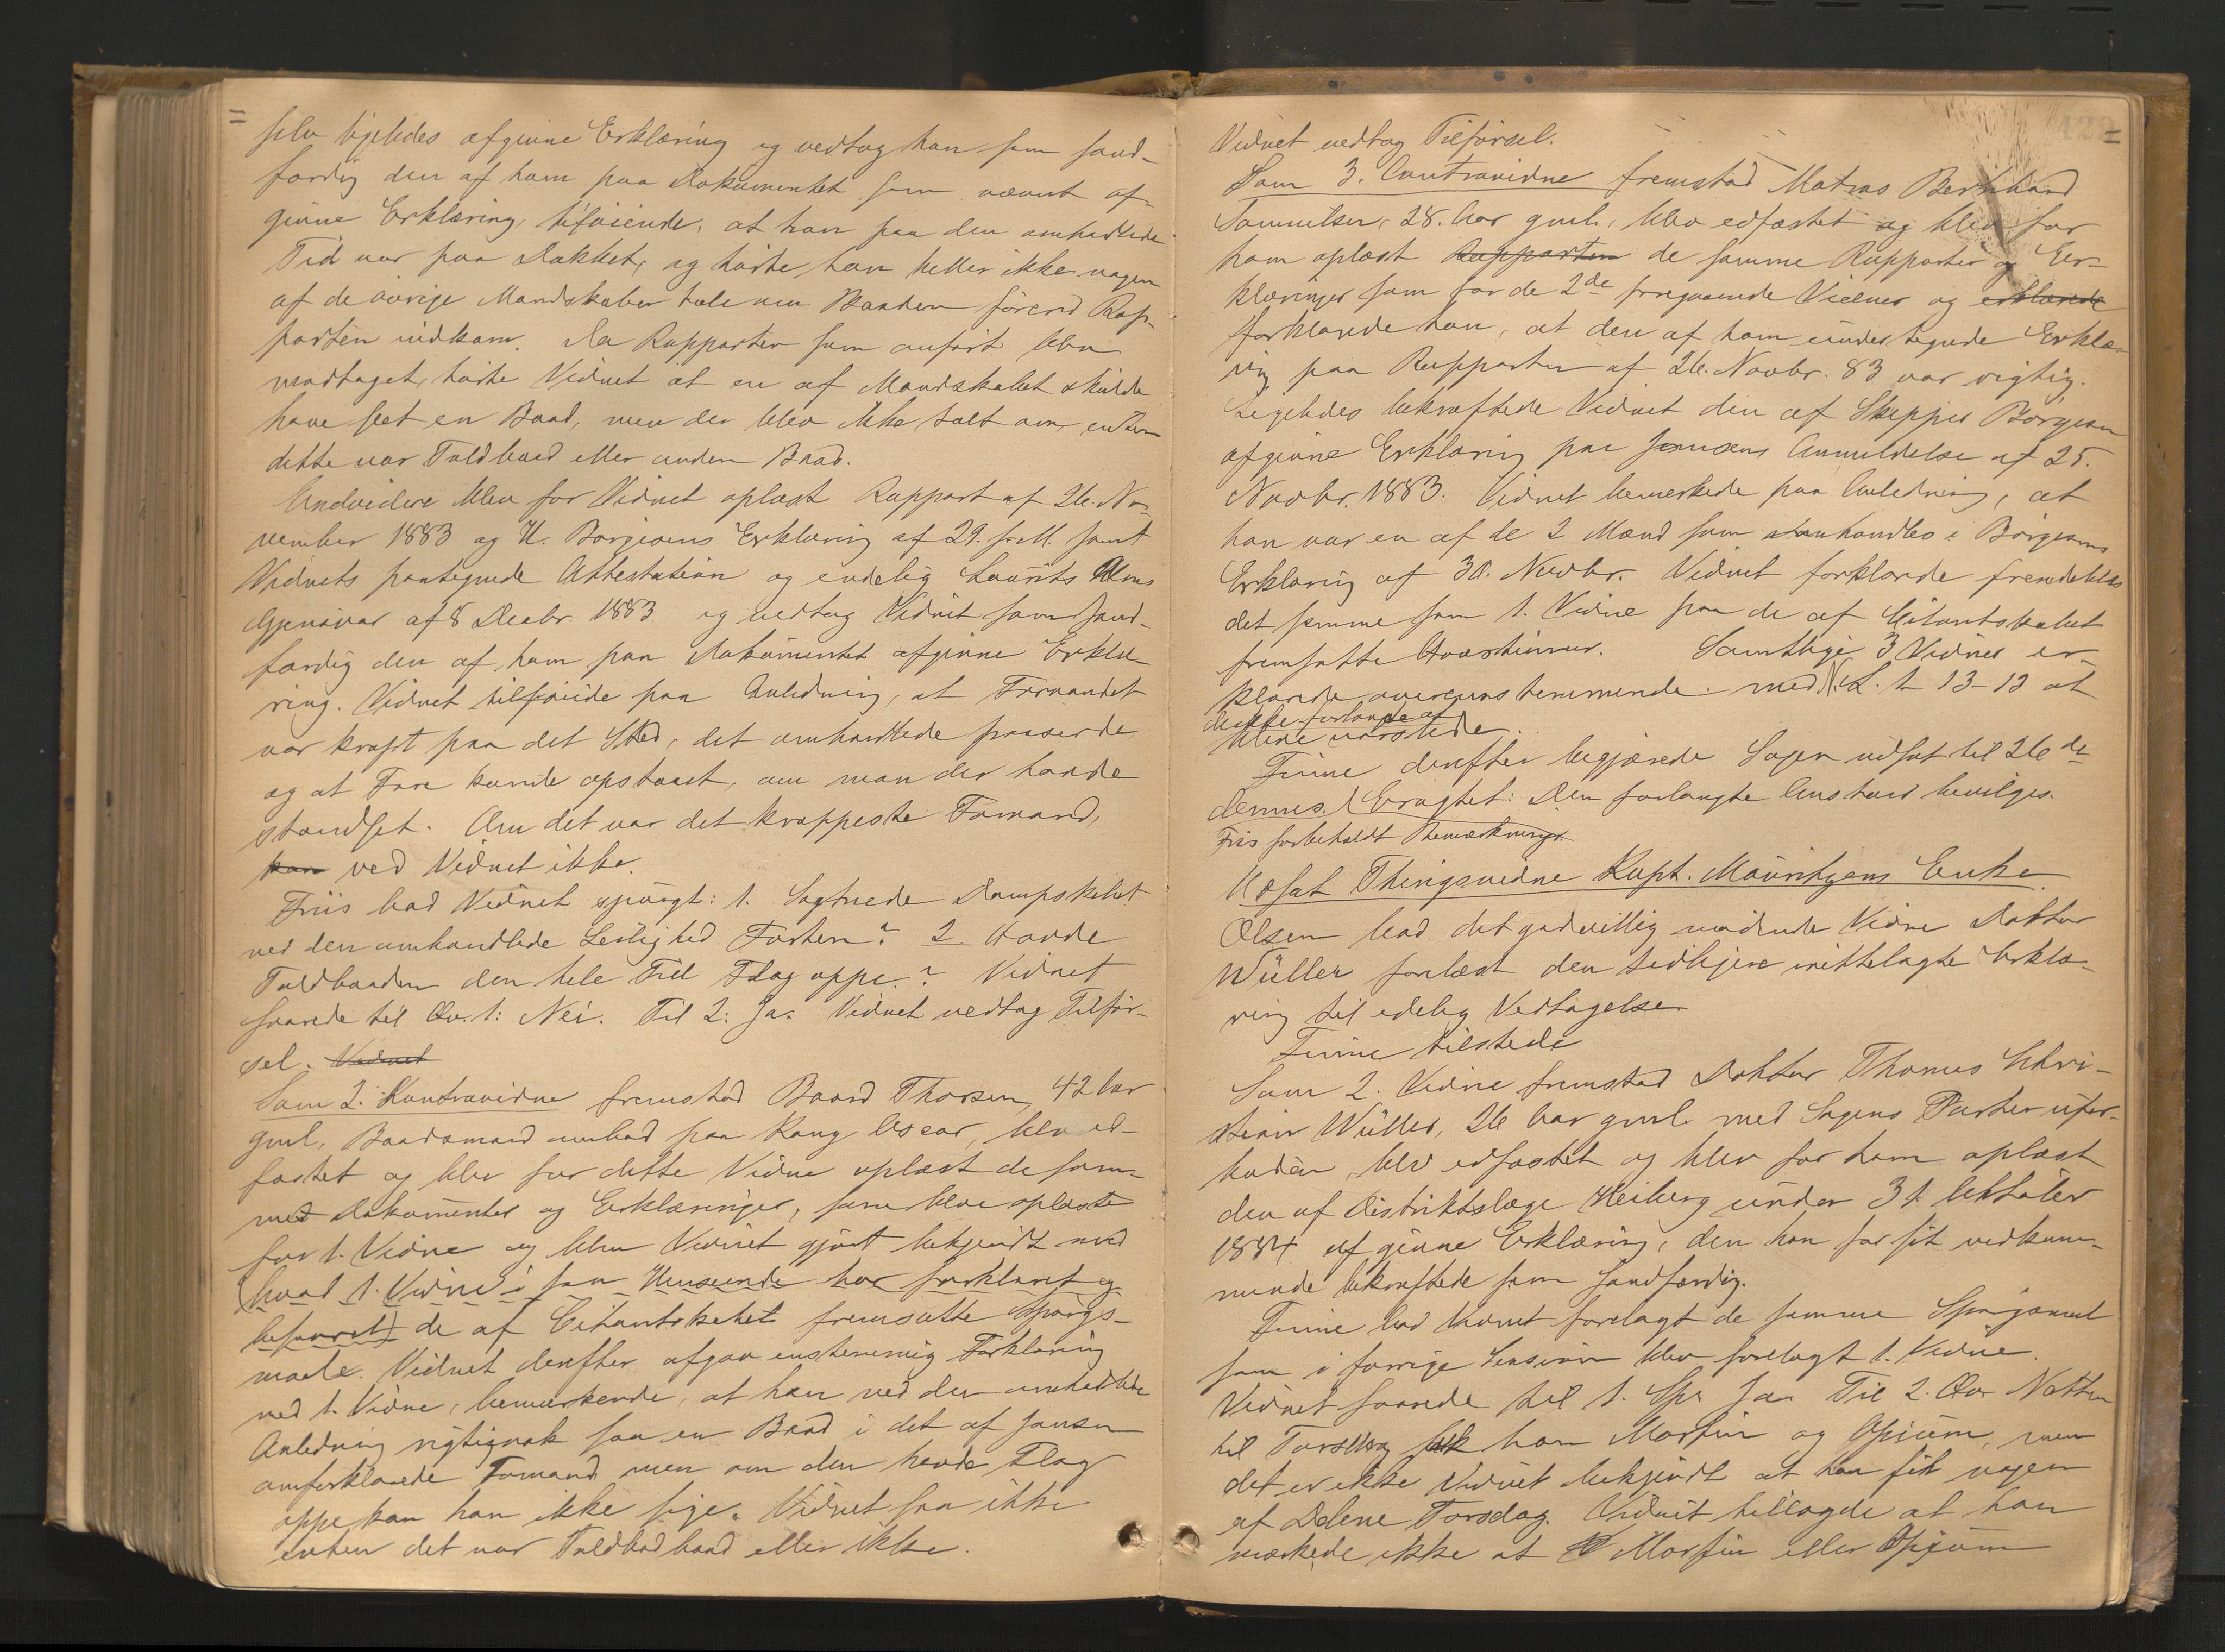 selv ligeledes afgivne Erklæring og vedtog han som sand-
færdig den af ham paa Dokumentet som nævnt af-
givne Erklæring, tilføiende, at han paa den omhandlede
Tid var paa Dækket, og hørte han heller ikke nogen
af de øvrige Mandskaber tale om Baaden førend Rap-
porten indkom. Da Rapporten som anført blev
modtaget, hørte Vidnet at en af Mandskabet skulde
have seet en Baad, men der blev ikke talt om enten
dette var Toldbaad eller anden Baad.
Endvidere blev for Vidnet oplæst Rapport af 26. No-
vember 1883 og H. Børgesens Erklæring af 29. s. M. samt
Vidnets paategnede Attestation og endelig Laurits
Gjensvar af 8 Decbr. 1883. og vedtog Vidnet som sand-
færdig den af ham paa Dokumentet afgivne Erklæ-
ring. Vidnet tilføiede paa Anledning, at Farvandet
var krapt paa det Sted, det omhandlede passerede
og at Fare kunde opstaaet, om man der havde
standset. Om det var det krappeste Farvand,
kan ved Vidnet ikke.
Friis bad Vidnet spurgt: 1. Sagtnede Dampskibet
ved den omhandlede Leilighed Farten? 2. Havde
Toldbaaden den hele Tid Flag oppe? Vidnet
svarede til Qv. 1: Nei. Til 2: Ja. Vidnet vedtog Tilfør-
sel. Vidnet
Som 2. Kontravidne fremstod Baard Thorsen, 42 Aar
gml, Baadsmand ombord paa Kong Oscar, blev ed-
fæstet og blev for dette Vidne oplæst de sam-
me Dokumenter og Erklæringer, som blev oplæste
for 1. Vidne og blev Vidnet gjort bekjendt med
(hvad 1. Vidne i saa Henseende har forklaret og
besvaret) de af Citantskabet fremsatte Spørgs-
maale. Vidnet derefter afgav enstemmig Forklaring
med 1. Vidne, bemærkende, at han ved den omhandlede
Anledning rigtignok saa en Baad i det af Jansen
omforklarede Farvand men om den havde Flag
oppe kan han ikke sige. Vidnet saa ikke
enten det var Toldbaad eller ikke.
Vidnet vedtog Tilførsel.
Som 3. Contravidne fremstod Matros Bernhard
Samuelsen, 28. Aar gml., blev edfæstet og blev for
ham oplæst Rapporten de samme Rapporter og Er-
klæringer som for de 2de foregaaende Vidner og erklærede
forklarede han, at den af ham undertegnede Erklæ-
ring paa Rapporten af 26. Novbr. 83 var rigtig.
Ligeledes bekræftede Vidnet den af Skipper Børgesen
afgivne Erklæring paa Jensens Anmeldelse af 25.
Novbr. 1883. Vidnet bemærkede paa Anledning, at
han var en af de 2 Mænd som omhandles i Børgesens
Erklæring af 30. Novbr. Vidnet forklarede fremdeles
det samme som 1. Vidne paa de af Citantskabet
fremsatte Qvæstioner. Samtlige 3 Vidner er-
klærede overensstemmende med N. L. 1-13-12 at
de ikke forlangte at
blive
Finne derefter begjærede Sagen udsat til 26de
dennes. Eragtet: Den forlangte Anstand bevilges.
Friis forbeholdt Bemærkninger.
Udsat Thingsvidne Kapt. Mauritzens Enke
Olsen bad det godvillig mødende Vidne Doktor
Wüller forelæst den tidligere irettelagte Erklæ-
ring til edelig Vedtagelse
Finne tilstede
Som 2. Vidne fremstod Doktor Thomas Chri-
stian Wüller, 26 Aar gml. med Sagens Parter ufor-
, blev edfæstet og blev for ham oplæst
den af Distriktslæge Heiberg under 31. Oktober
1884 afgivne Erklæring, den han for sit vedkom-
mende bekræftede som sandfærdig.
Finne bad Vidnet forelagt de samme Spørgsmaal
som i forrige Session blev forelagt 1. Vidne.
Vidnet svarede til 1. Sp. Ja. Til 2. Qv. Natten
til Torsdag fik han Morfin og Opium, men
det er ikke Vidnet bekjendt at han fik nogen
af Delene Torsdag. Vidnet tillagde at han
mærkede ikke at Morfin eller Opium